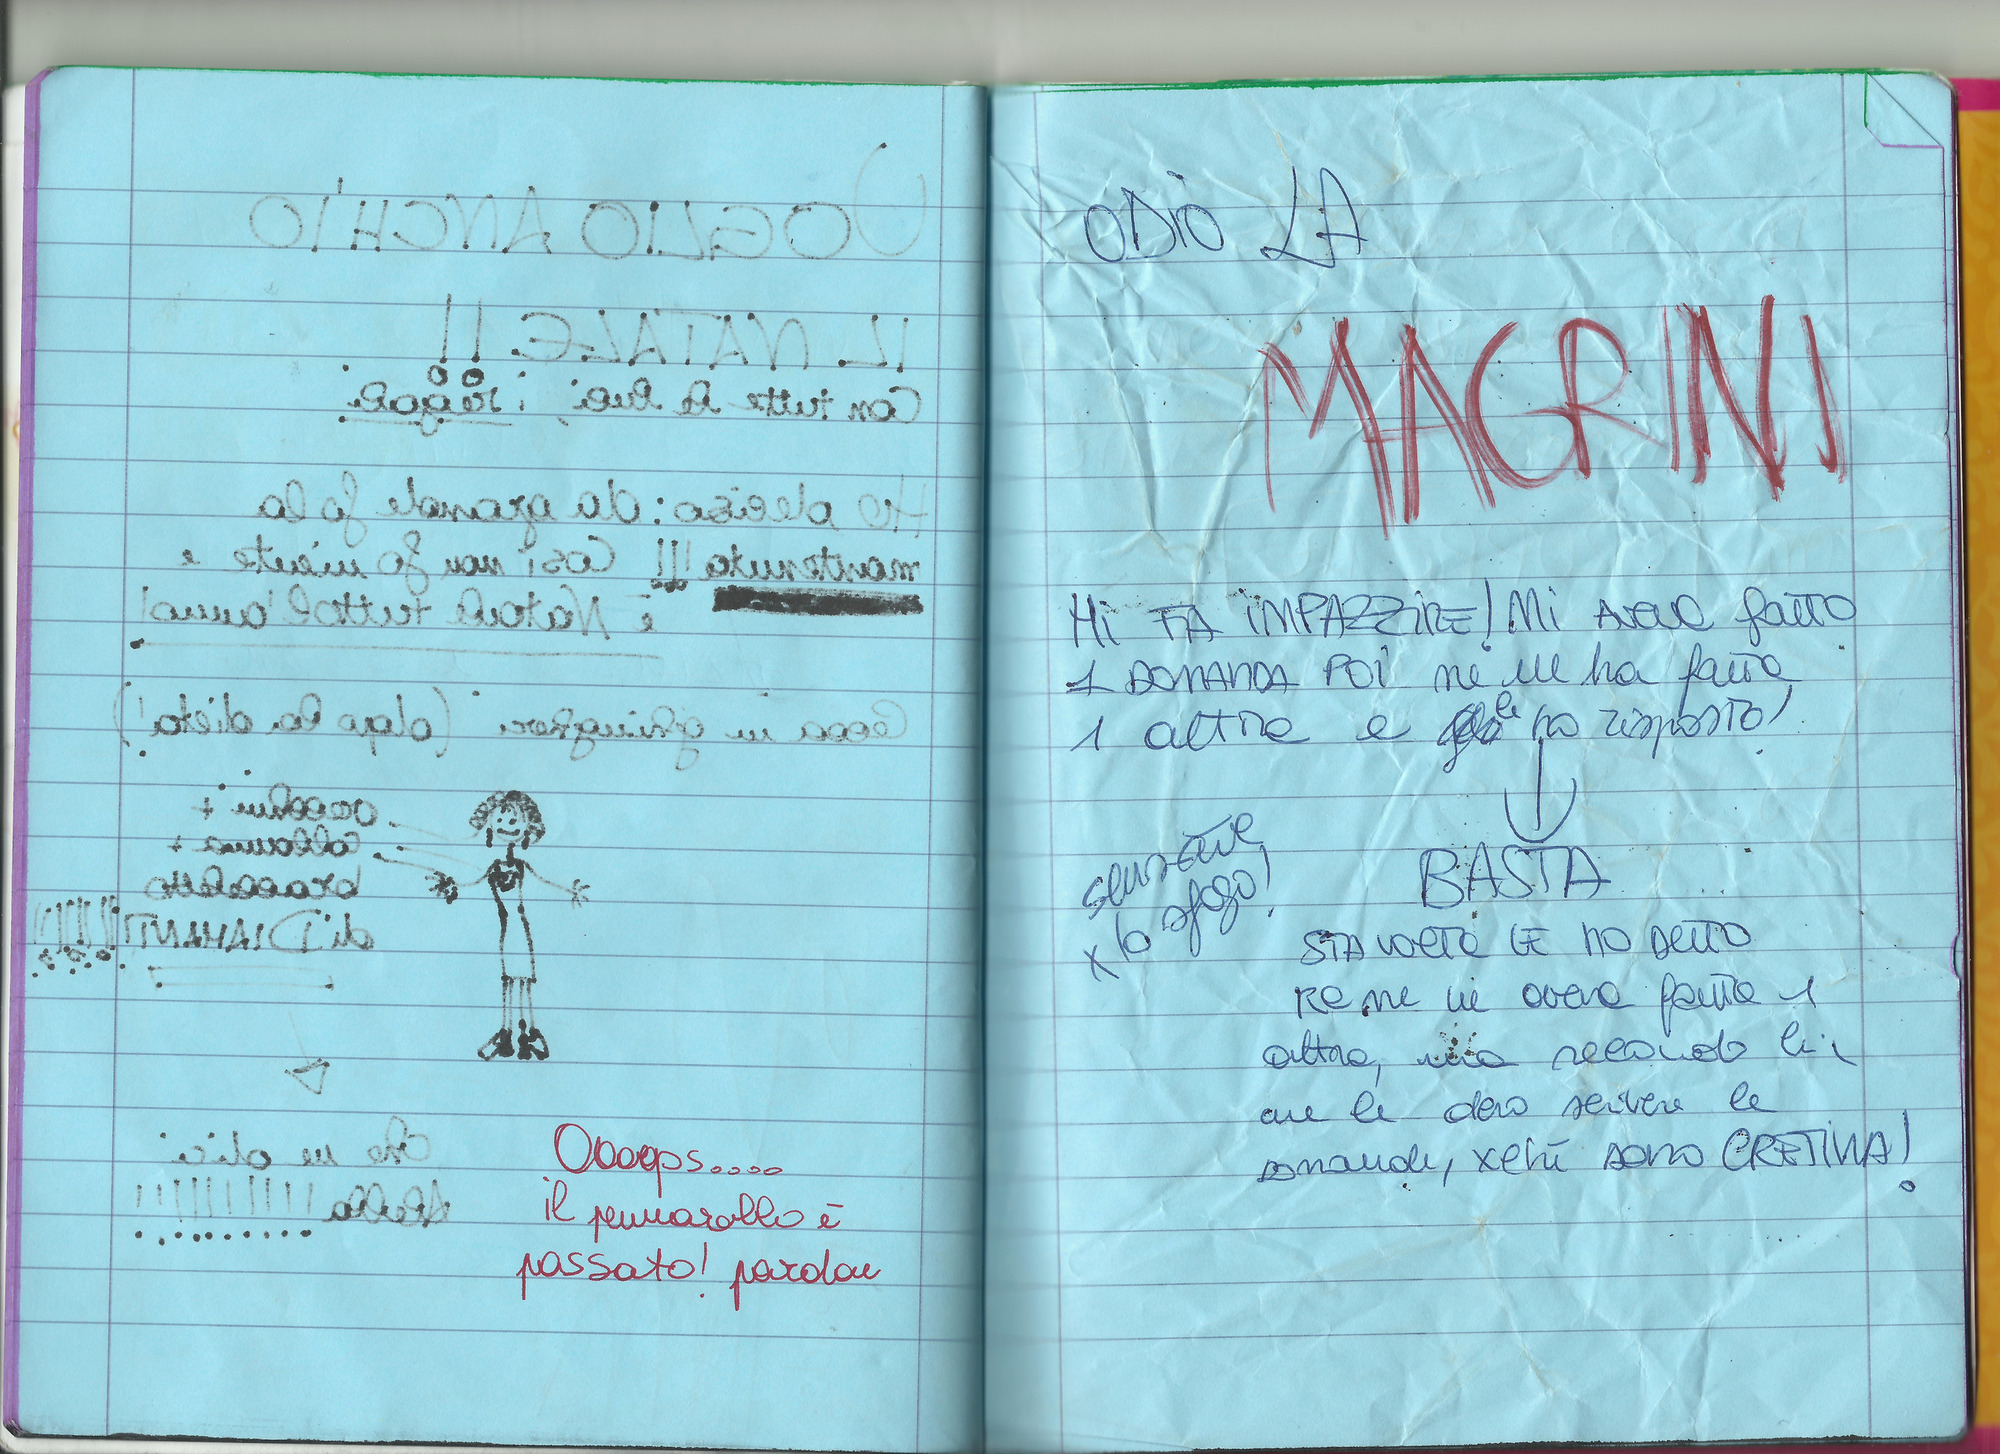 VOGLIO ANCH'IO
IL NATALE!!
Con tutte le luci, i regali
Ho deciso: da grande fo la
mantenuta!!! Così non fo niente e
è Natale tutto l'anno!
Cecca in ghingheri (dopo la dieta!)
orecchini +
collana +
braccialetto
di DIAMANTI!!!!!!!
Che ne dici
Stella!!!!!!!!!!
Ooops....
il pennarello è
passato! pardon
ODIO LA
MAGRINI
MI FA IMPAZZIRE! MI aveva fatto
1 DOMANDA POI me ne ha fatta
1 altra e le ho risposto!
BASTA
scusate
x lo sfogo!
STAVOLTA LE HO DETTO
KE me ne aveva fatta 1
altra, ma secondo lei
le devo scrivere le
domande, xkè sono CRETINA!